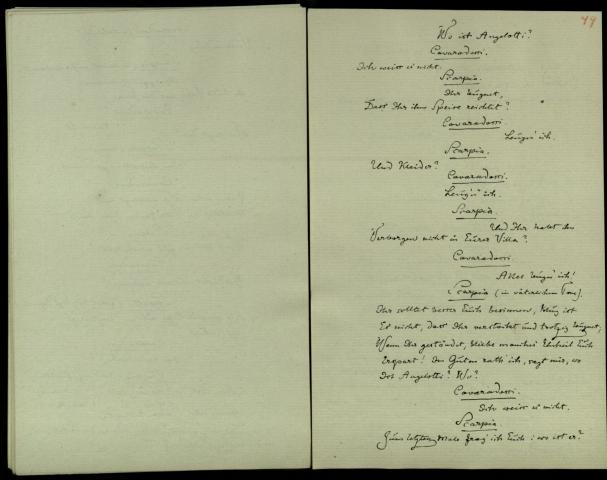 49
Wo ist Angelotti?
Cavaradossi.
Ich weiss es nicht.
Scarpia.
Ihr leugnet,
Dass Ihr ihm Speise reichtet?
Cavaradossi.
Leugn' ich.
Scarpia.
Und Kleider?
Cavaradossi.
Leugn' ich.
Scarpia.
Und Ihr habt ihn
Verborgen nicht in Eurer Villa?
Cavaradossi.
Alles leugn' ich!
Scarpia (in väterlichem Ton).
Ihr solltet besser Euch besinnen, klug ist
Es nicht, dass Ihr verstockt und trotzig leugnet,
Wenn Ihr geständet, bliebe manches Euch
Erspart! Im Guten rath' ich, sagt mir, wo
Ist Angelotti? Wo?
Cavaradossi.
Ich weiss es nicht.
Scarpia.
Zum letzten Male frag' ich Euch: wo ist er?